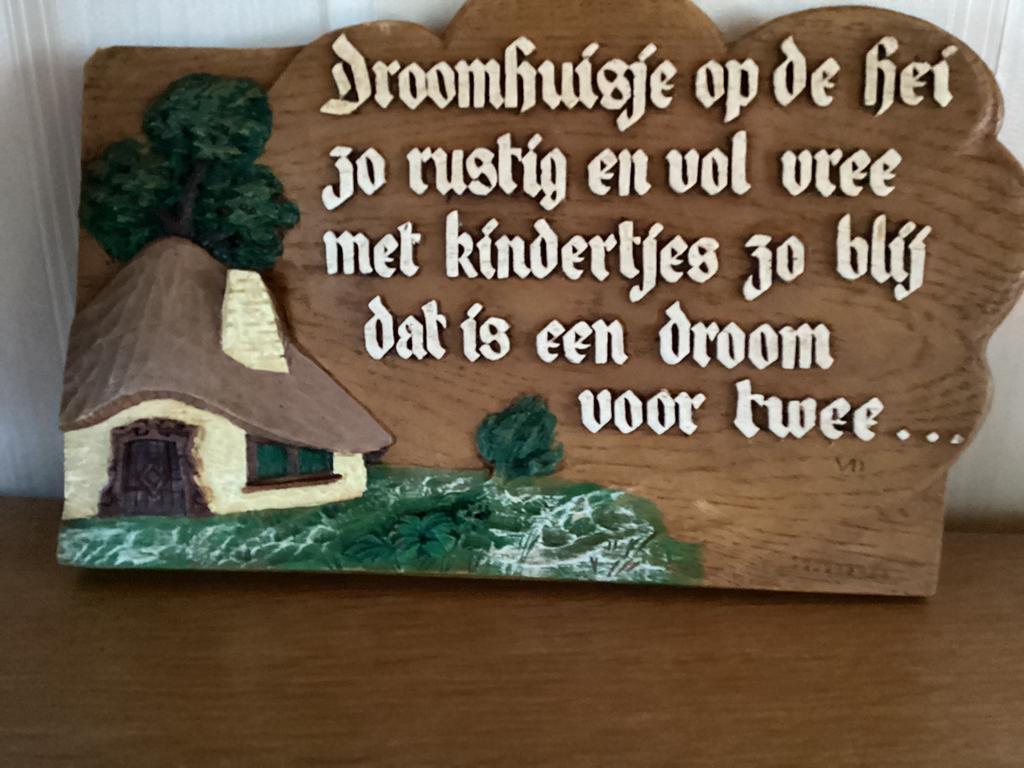 Droomhuisje op de hei
zo rustig en vol vree
met kindertjes zo blij
dat is een droom
voor twee...